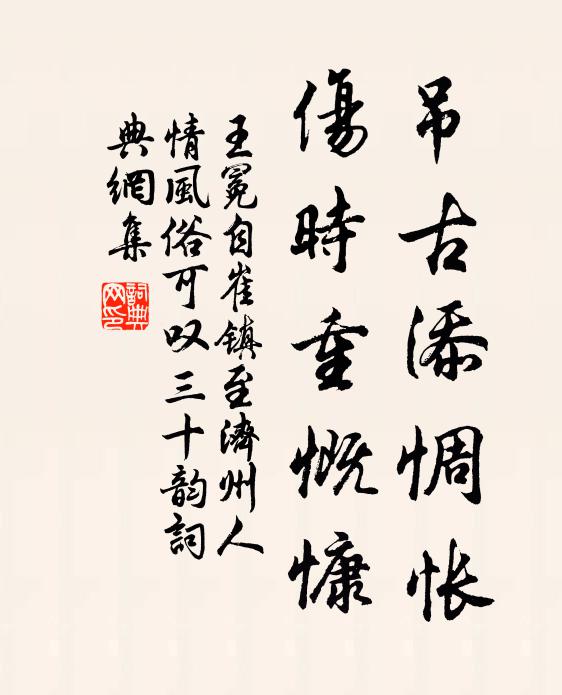 吊古添惆怅
傷時重慨慷
王冕自崔镇至濟州人
情風俗可叹三十韵詞
典網集
詞典网印